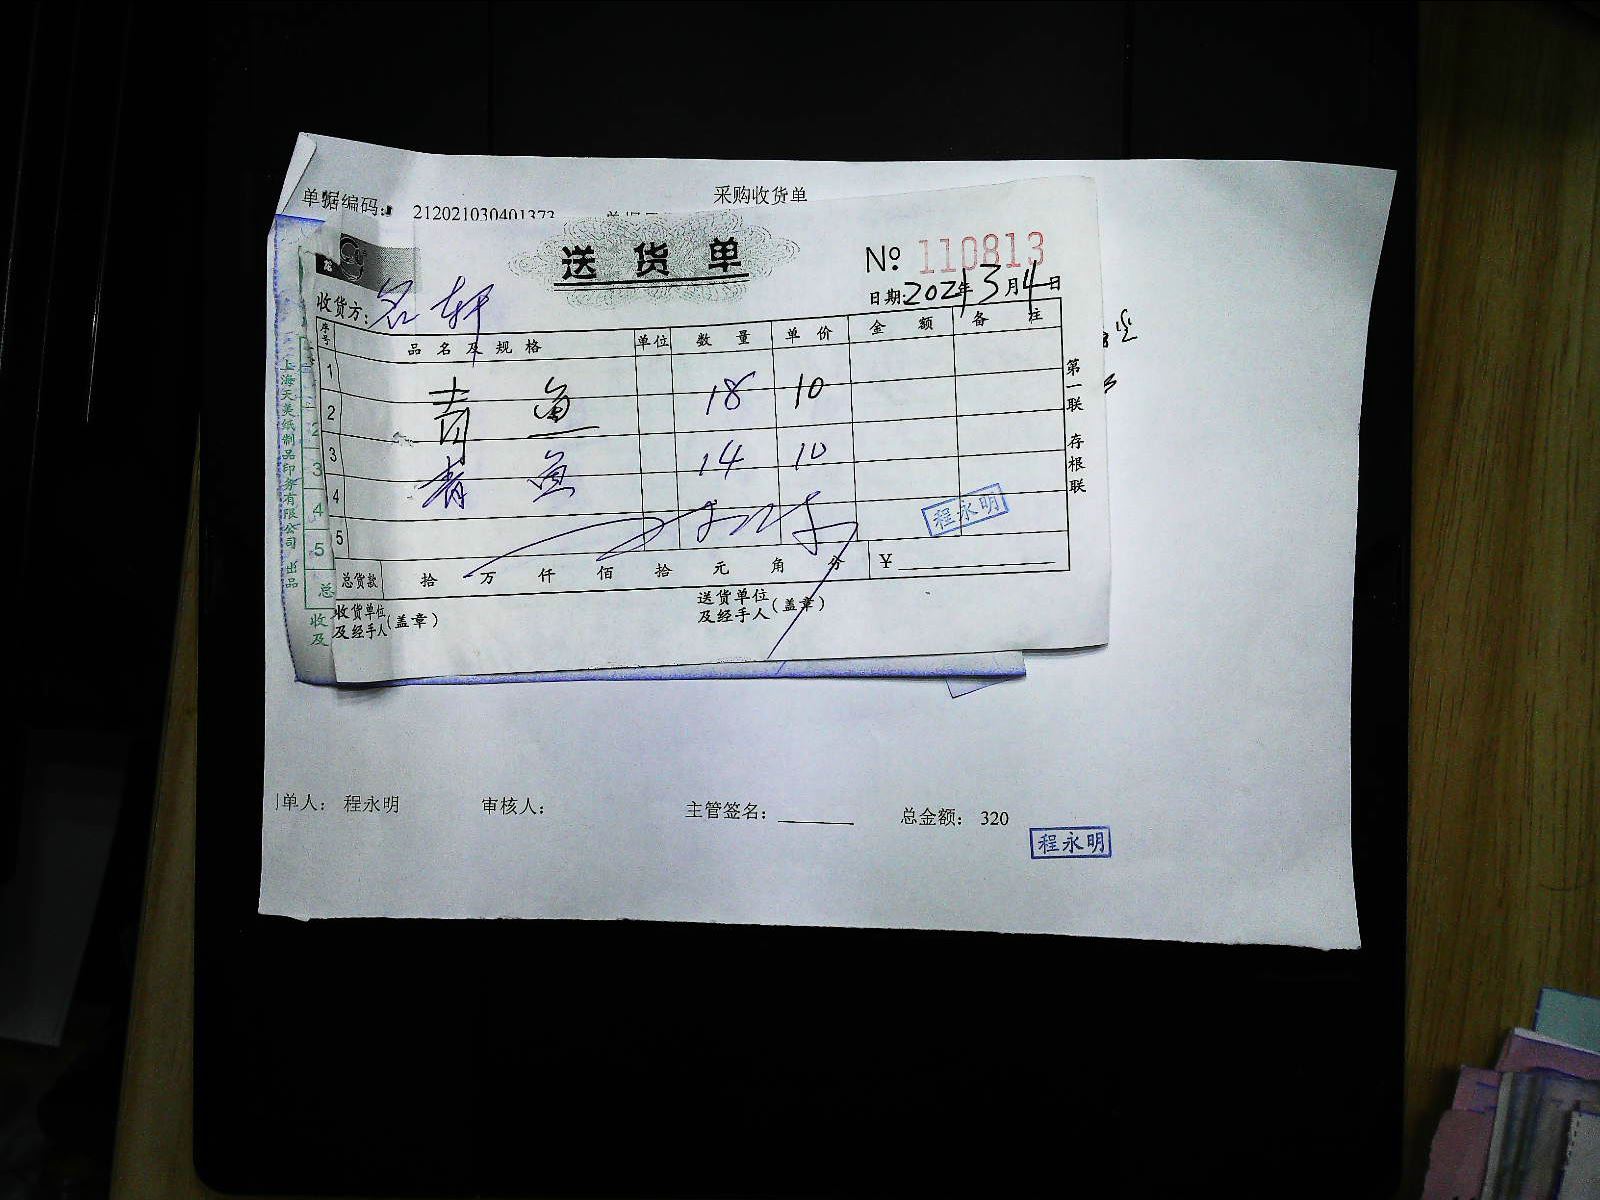 采购收货单
单据编码: 212021030401373
送货单
№ 110813
日期: 2021年3月4日
收货方: 名轩
序号 品名及规格 单位 数量 单价 金额 备注
1
2 青鱼 18 10
3
4 青鱼 14 10
5
程永明
总货款 拾 万 仟 佰 拾 元 角 分 ¥
收货单位及经手人(盖章) 送货单位及经手人(盖章)
第一联 存根联
上海天美纸制品印务有限公司 出品
2
3
4
5
总
收
及
单人: 程永明 审核人: 主管签名: 总金额: 320
程永明